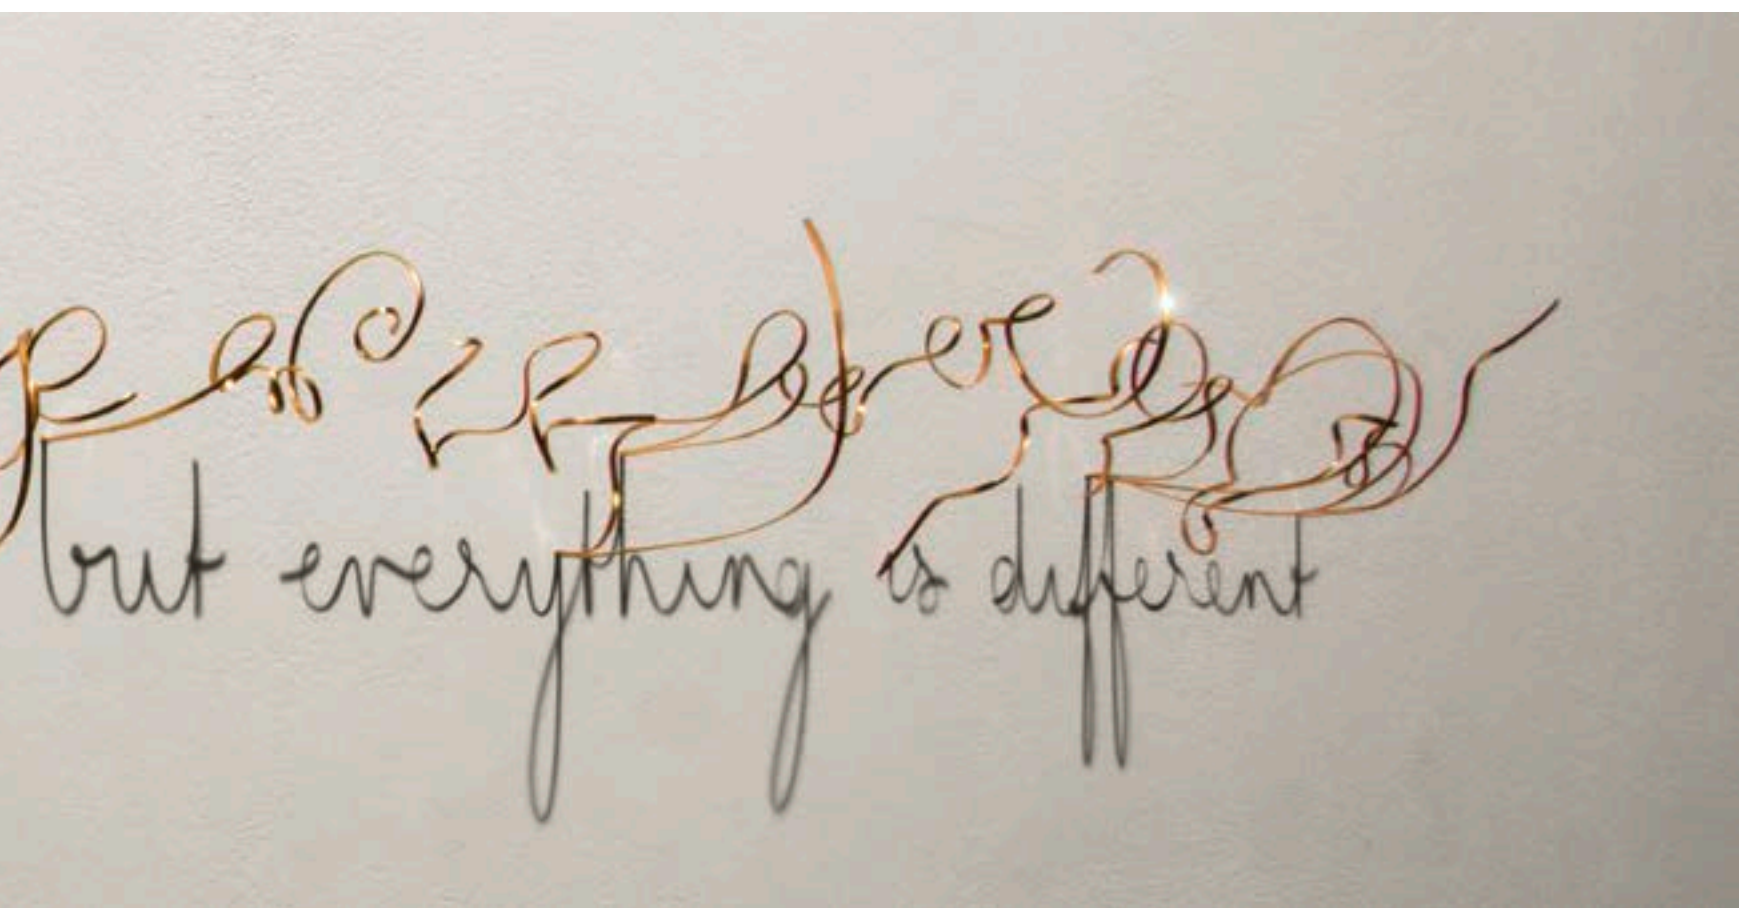 but everything is different